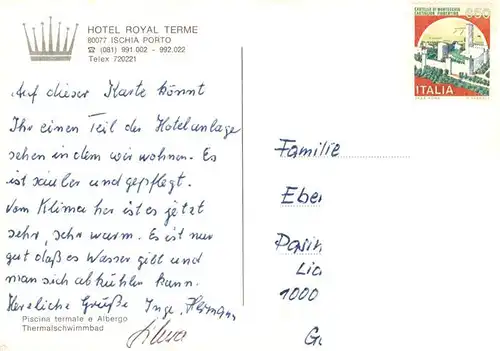 HOTEL ROYAL TERME
80077 ISCHIA PORTO
☎ (081) 991.002 - 992.022
Telex 720221
CASTELLO DI MONTECCHIO
CASTIGLION FIORENTINO
650
ITALIA
Auf dieser Karte könnt
Ihr einen Teil der Hotelanlage
sehen in dem wir wohnen. Es
ist sauber und gepflegt.
Vom Klima her ist es jetzt
sehr, sehr warm. Es ist nur
gut daß es Wasser gibt und
man sich abkühlen kann.
Herzliche Grüße Inge, Hermann
Piscina termale e Albergo
Thermalschwimmbad
Familie
Eber
Lic
1000